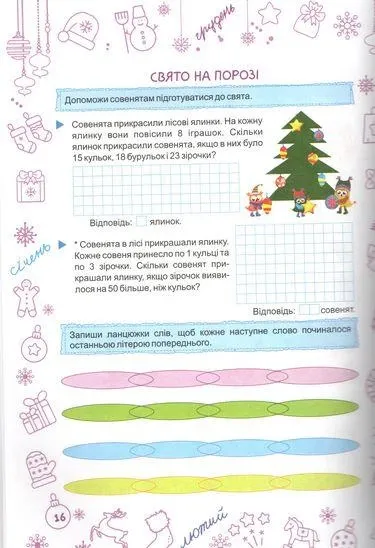 грудень
СВЯТО НА ПОРОЗІ
Допоможи совенятам підготуватися до свята.
Совенята прикрасили лісові ялинки. На кожну
ялинку вони повісили 8 іграшок. Скільки
ялинок прикрасили совенята, якщо в них було
15 кульок, 18 бурульок і 23 зірочки?
Відповідь: ялинок.
січень
* Совенята в лісі прикрашали ялинку.
Кожне совеня принесло по 1 кульці та
по 3 зірочки. Скільки совенят при-
крашали ялинку, якщо зірочок вияви-
лося на 50 більше, ніж кульок?
Відповідь: совенят.
Запиши ланцюжки слів, щоб кожне наступне слово починалося
останньою літерою попереднього.
16
лютий